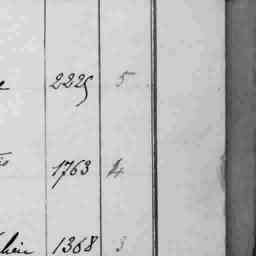 2225 5
1763 4
1368 3